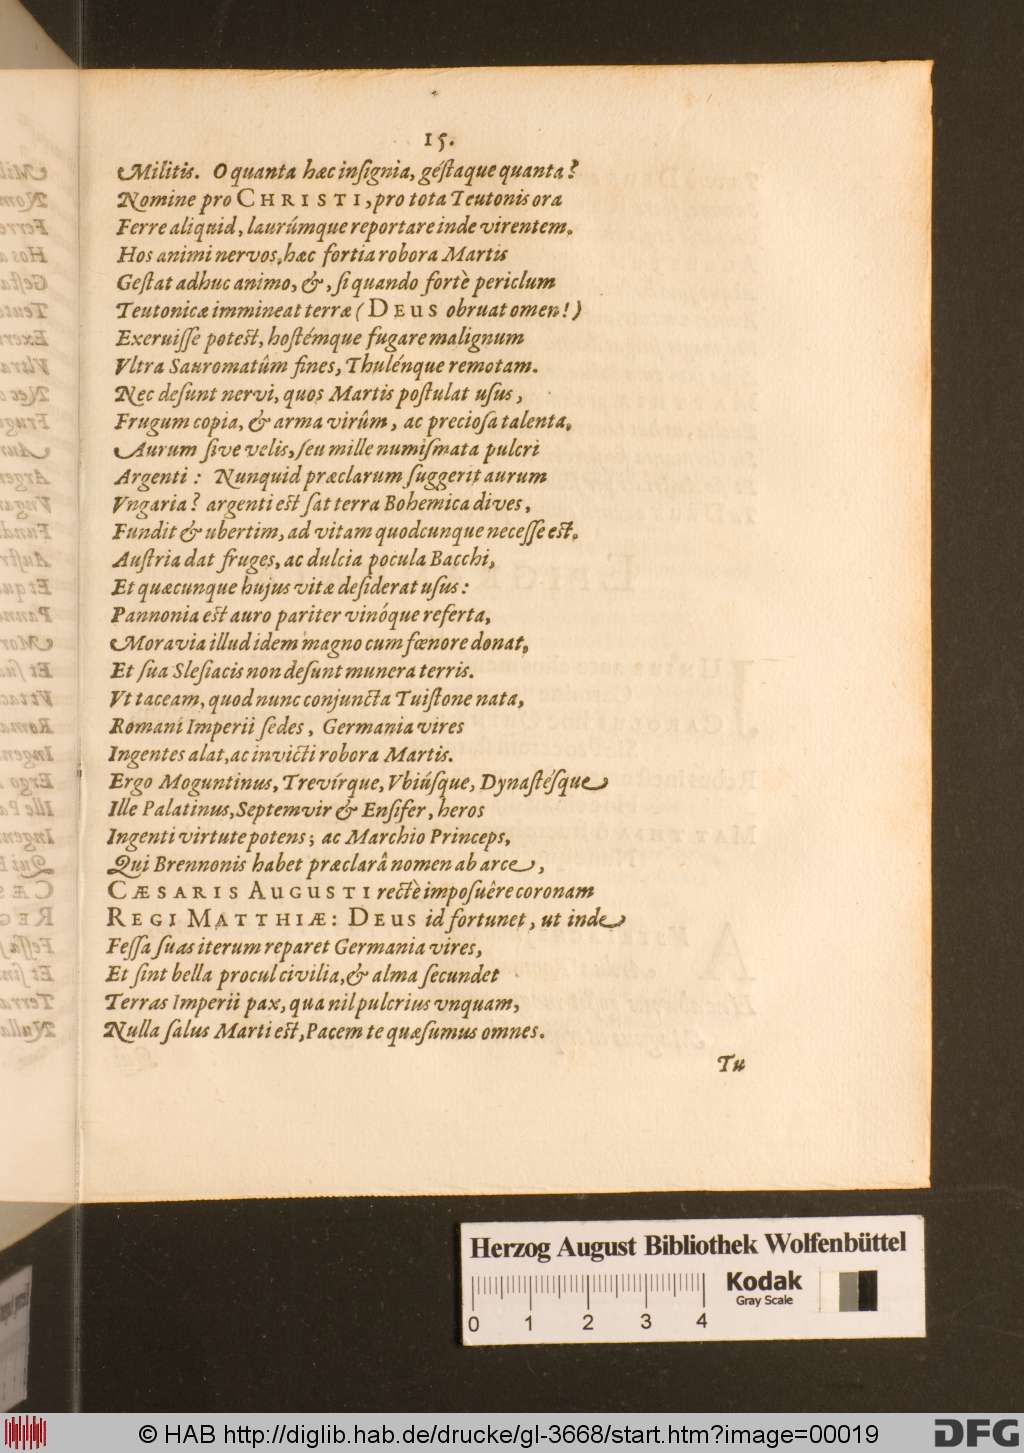 15.
Militis. O quanta hæc insignia, géstaque quanta?
Nomine pro CHRISTI, pro tota Teutonis ora
Ferre aliquid, laurúmque reportare inde virentem.
Hos animi nervos, hæc fortia robora Martis
Gestat adhuc animo, &, si quando fortè periclum
Teutonicæ immineat terræ (DEUS obruat omen!)
Exeruisse potest, hostémque fugare malignum
Vltra Sauromatûm fines, Thulénque remotam.
Nec desunt nervi, quos Martis postulat usus,
Frugum copia, & arma virûm, ac preciosa talenta,
Aurum sive velis, seu mille numismata pulcri
Argenti: Nunquid præclarum suggerit aurum
Vngaria? argenti est sat terra Bohemica dives,
Fundit & ubertim, ad vitam quodcunque necesse est.
Austria dat fruges, ac dulcia pocula Bacchi,
Et quæcunque hujus vitæ desiderat usus:
Pannonia est auro pariter vinóque referta,
Moravia illud idem magno cum fœnore donat,
Et sua Slesiacis non desunt munera terris.
Vt taceam, quod nunc conjuncta Tuistone nata,
Romani Imperii sedes, Germania vires
Ingentes alat, ac invicti robora Martis.
Ergo Moguntinus, Trevírque, Vbiúsque, Dynastésque
Ille Palatinus, Septemvir & Ensifer, heros
Ingenti virtute potens; ac Marchio Princeps,
Qui Brennonis habet præclarâ nomen ab arce,
CÆSARIS AUGUSTI rectè imposuêre coronam
REGI MATTHIÆ: DEUS id fortunet, ut inde
Fessa suas iterum reparet Germania vires,
Et sint bella procul civilia, & alma secundet
Terras Imperii pax, qua nil pulcrius vnquam,
Nulla salus Marti est, Pacem te quæsumus omnes.
Tu
Herzog August Bibliothek Wolfenbüttel
Kodak
Gray Scale
0 1 2 3 4
© HAB http://diglib.hab.de/drucke/gl-3668/start.htm?image=00019
DFG